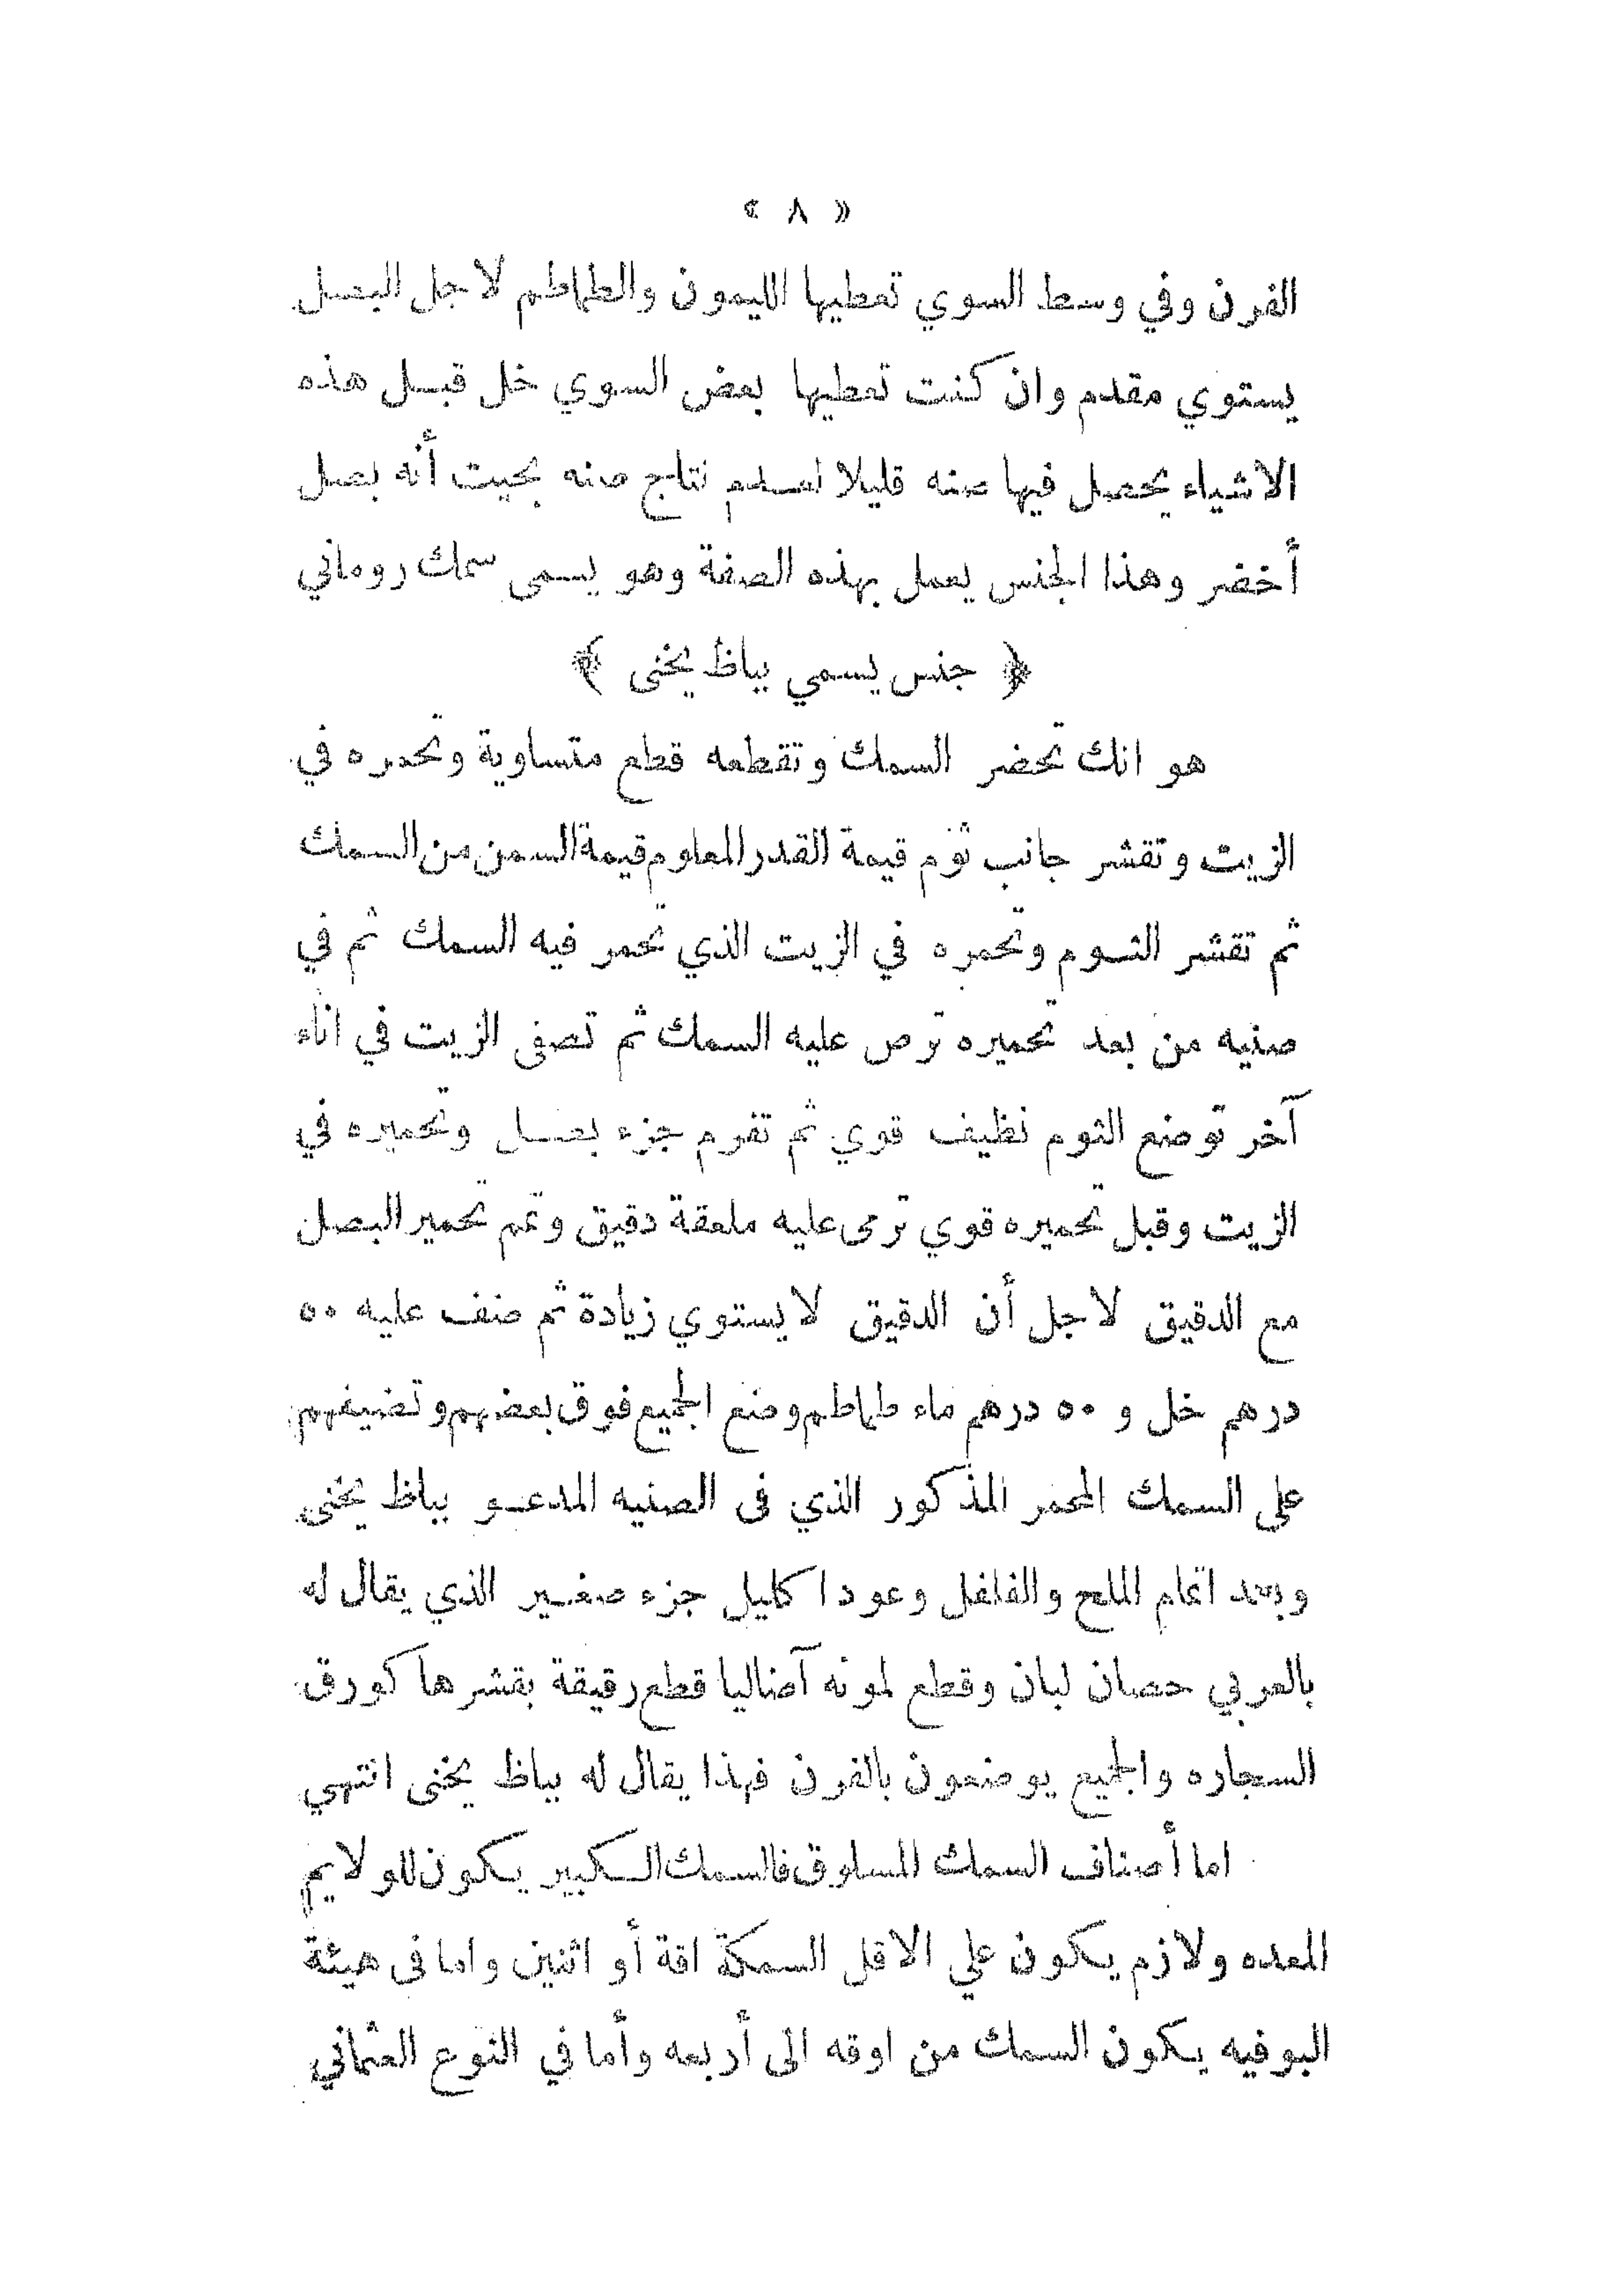 « ٨ »
الفرن وفي وسط السوي تعطيها الليمون والطماطم لاجل البصل
يستوي مقدم وان كنت تعطيها بعض السوي خل قبل هذه
الاشياء يحصل فيها صنه قليلا لعدم نتاج صنه بحيت أنه بصل
أخضر وهذا الجنس يعمل بهذه الصفة وهو يسمى سمك روماني
﴿ جنس يسمي بياظ يخنى ﴾
هو انك تحضر السمك وتقطعه قطع متساوية وتحمره في
الزيت وتقشر جانب ثوم قيمة القدر المعلوم قيمة السمن من السمك
ثم تقشر الثوم وتحمره في الزيت الذي تحمر فيه السمك ثم في
صنيه من بعد تحميره ترص عليه السمك ثم تصفى الزيت في اناء
آخر توضع الثوم نظيف قوي ثم تفرم جزء بصل وتحميره في
الزيت وقبل تحميره قوي ترمى عليه ملعقة دقيق وتمم تحمير البصل
مع الدقيق لاجل أن الدقيق لا يستوي زيادة ثم ضف عليه ٥٠
درهم خل و ٥٠ درهم ماء طماطم وضع الجميع فوق بعضهم وتضيفهم
على السمك المحمر المذكور الذي فى الصنيه المدعو بياظ يخنى
وبعد اتمام الملح والفلفل وعود اكليل جزء صغير الذي يقال له
بالعربي حصان لبان وقطع لمونه آضاليا قطع رقيقة بقشرها كورق
السجاره والجميع يوضعون بالفرن فهذا يقال له بياظ يخنى انتهي
اما أصناف السمك المسلوق فالسمك الكبير يكون للولايم
المعده ولازم يكون علي الاقل السمكة اقة أو اثنين واما فى هيئة
البوفيه يكون السمك من اوقه الى أربعه وأما في النوع العثماني